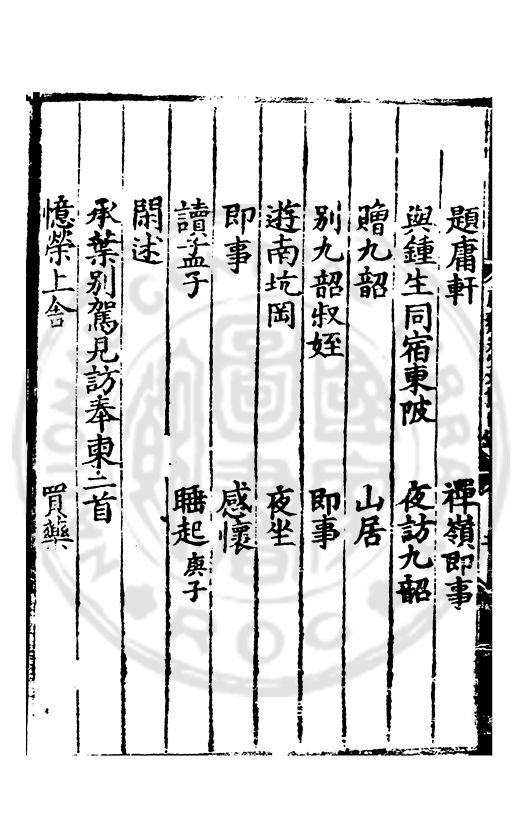 題庸軒 禪嶺即事
與鍾生同宿東陂 夜訪九韶
贈九韶 山居
別九韶叔姪 即事
遊南坑岡 夜坐
即事 感懷
讀孟子 睡起庚子
閑述
承葉別駕見訪奉柬二首
憶榮上舍 買藥